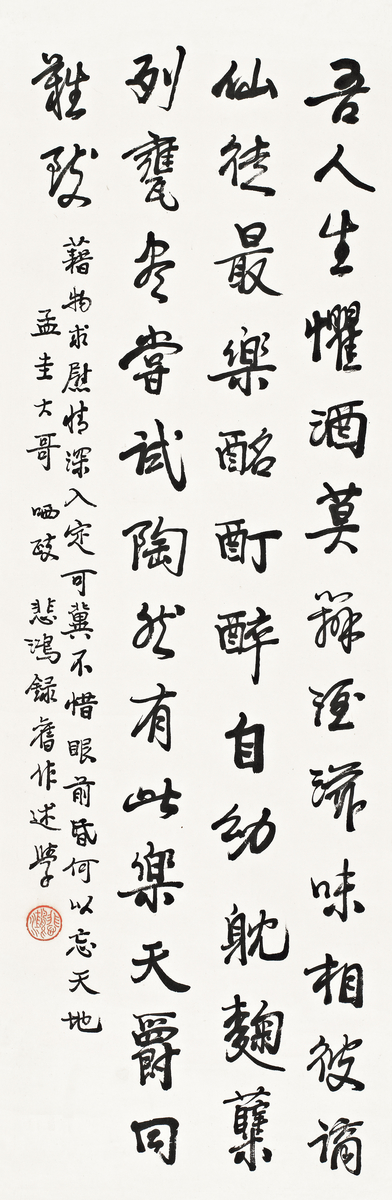 吾人生懼酒莫辨涇滋味相彼謫
仙徒最樂酩酊醉自幼躭麴櫱
列甕盡嘗試陶然有此樂天爵同
難致
藉物求慰情深入定可冀不惜眼前昏何以忘天地
孟圭大哥 哂政 悲鴻錄舊作述學